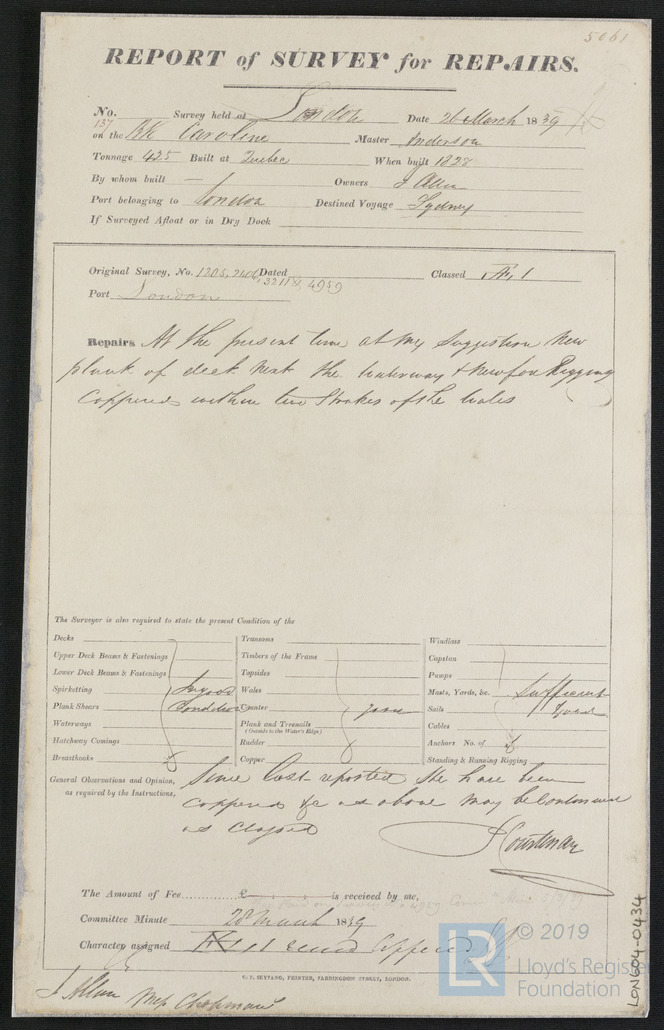 5061
REPORT of SURVEY for REPAIRS.
No. 137 Survey held at London Date 26 March 1839
on the Bk Caroline Master Anderson
Tonnage 425 Built at Quebec When built 1828
By whom built — Owners J Allan
Port belonging to London Destined Voyage Sydney
If Surveyed Afloat or in Dry Dock
Original Survey, No. 1205, 2406, 3211, 4959 Dated Classed Æ 1
Port London
Repairs At the present time at my Suggestion New
plank of deck next the waterway & new fore Rigging
Coppered within two Strakes of the Wales
The Surveyor is also required to state the present Condition of the
Decks
Upper Deck Beams & Fastenings
Lower Deck Beams & Fastenings
Spirketting In good
Plank Shears Condition
Waterways
Hatchway Comings
Breasthooks
Transoms
Timbers of the Frame
Topsides
Wales
Counter Good
Plank and Treenails
(Outside to the Water's Edge)
Rudder
Copper
Windlass
Capstan
Pumps
Masts, Yards, &c. Sufficient
Sails Good
Cables
Anchors No. of
Standing & Running Rigging
General Observations and Opinion, Since last reported She have been
as required by the Instructions, Coppered &c as above May be Continued
as Classed
J Courtenay
The Amount of Fee £ is received by me,
Committee Minute 28 March 1839
Character assigned Æ 1 Coppered
C. F. SEYFANG, PRINTER, FARRINGDON STREET, LONDON.
J Allan Mess Chapman
LON604-0434
LR
© 2019
Lloyd's Register
Foundation